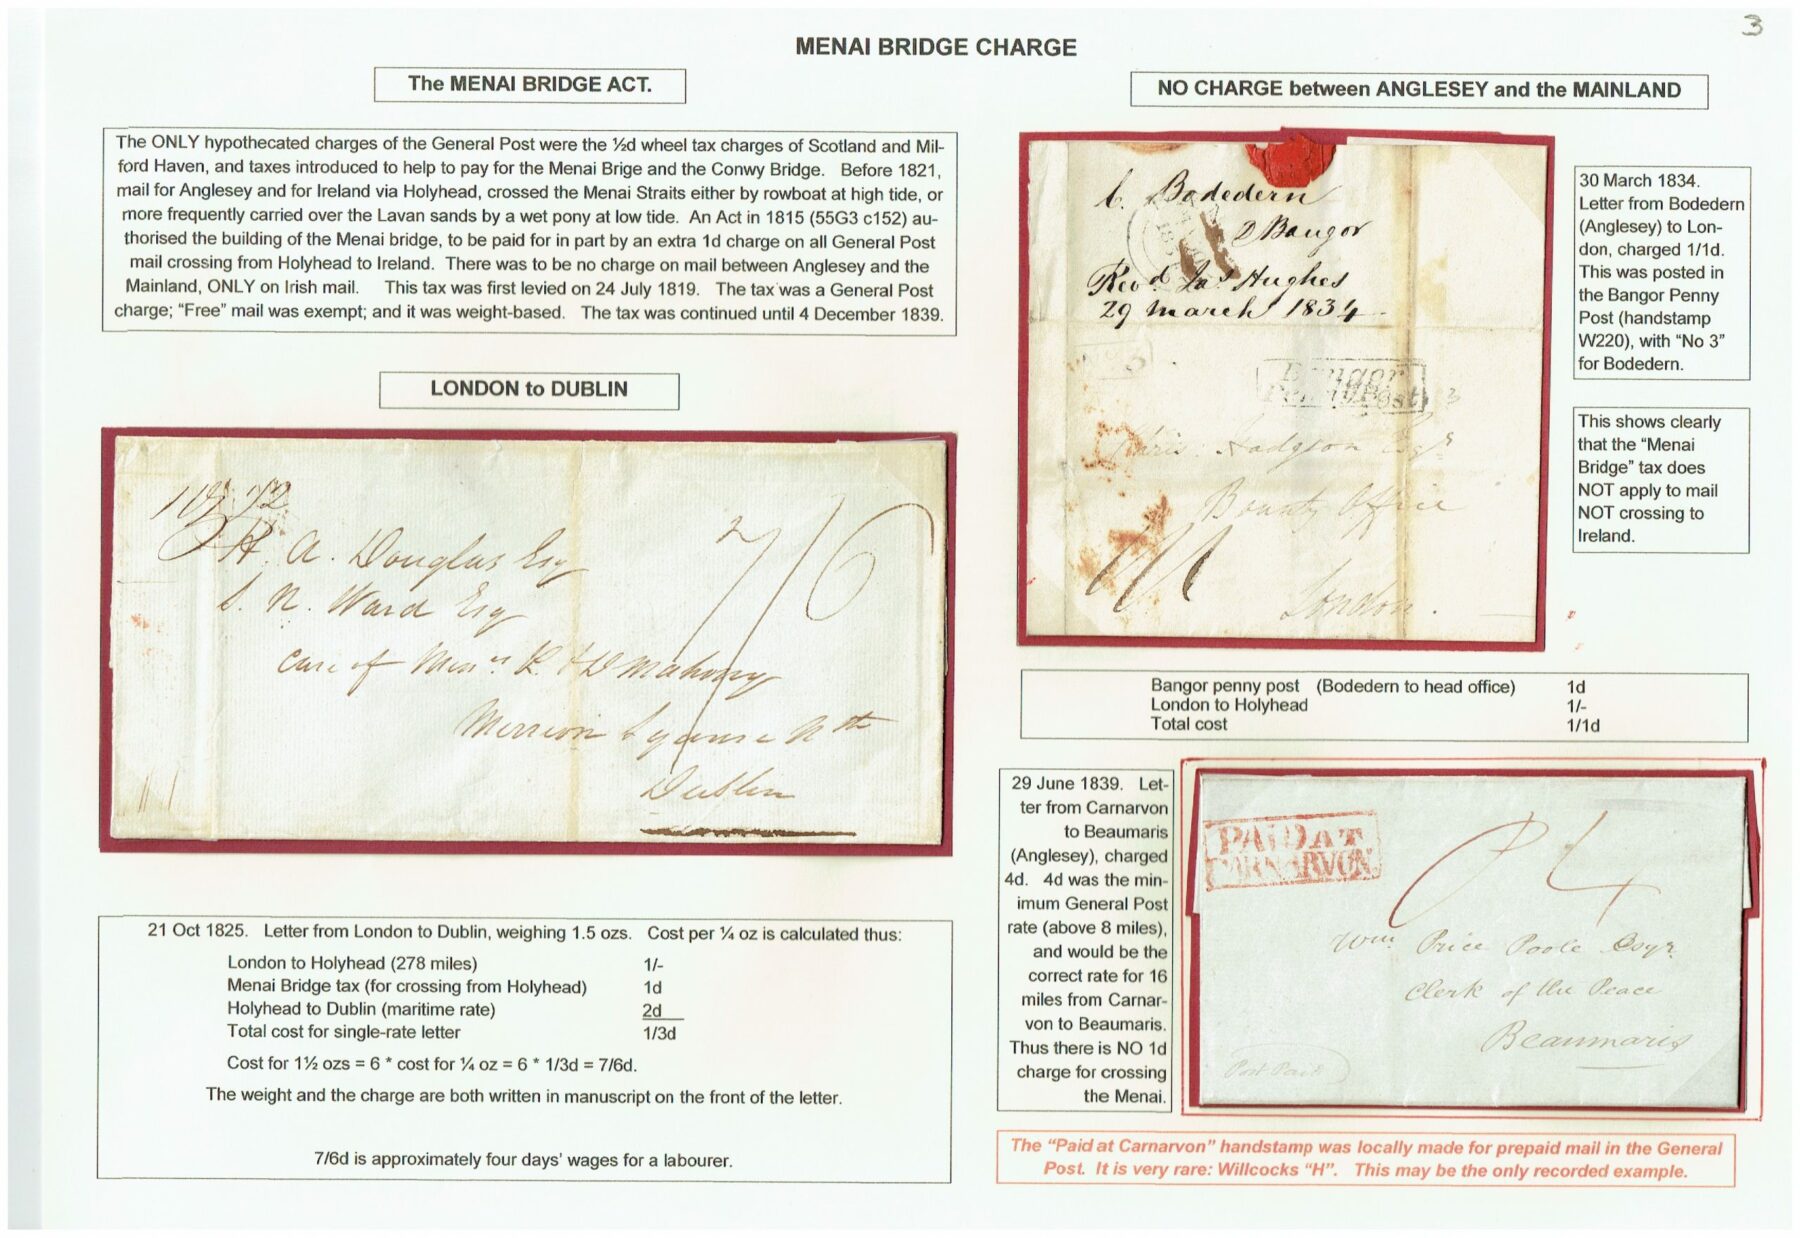 3
MENAI BRIDGE CHARGE
The MENAI BRIDGE ACT.
The ONLY hypothecated charges of the General Post were the ½d wheel tax charges of Scotland and Mil-
ford Haven, and taxes introduced to help to pay for the Menai Brige and the Conwy Bridge. Before 1821,
mail for Anglesey and for Ireland via Holyhead, crossed the Menai Straits either by rowboat at high tide, or
more frequently carried over the Lavan sands by a wet pony at low tide. An Act in 1815 (55G3 c152) au-
thorised the building of the Menai bridge, to be paid for in part by an extra 1d charge on all General Post
mail crossing from Holyhead to Ireland. There was to be no charge on mail between Anglesey and the
Mainland, ONLY on Irish mail. This tax was first levied on 24 July 1819. The tax was a General Post
charge; “Free” mail was exempt; and it was weight-based. The tax was continued until 4 December 1839.
LONDON to DUBLIN
7/6
H. A. Douglas Esq
S. N. Ward Esq
Care of Messrs R & D Mahony
Merrion Square Nth
Dublin
21 Oct 1825. Letter from London to Dublin, weighing 1.5 ozs. Cost per ¼ oz is calculated thus:
London to Holyhead (278 miles) 1/-
Menai Bridge tax (for crossing from Holyhead) 1d
Holyhead to Dublin (maritime rate) 2d
Total cost for single-rate letter 1/3d
Cost for 1½ ozs = 6 * cost for ¼ oz = 6 * 1/3d = 7/6d.
The weight and the charge are both written in manuscript on the front of the letter.
7/6d is approximately four days’ wages for a labourer.
NO CHARGE between ANGLESEY and the MAINLAND
Bodedern
Bangor
Revd Jas Hughes
29 March 1834
Bangor
Penny Post
Chris. Hodgson Esqr
Bounty Office
London.
30 March 1834.
Letter from Bodedern
(Anglesey) to Lon-
don, charged 1/1d.
This was posted in
the Bangor Penny
Post (handstamp
W220), with “No 3”
for Bodedern.
This shows clearly
that the “Menai
Bridge” tax does
NOT apply to mail
NOT crossing to
Ireland.
Bangor penny post (Bodedern to head office) 1d
London to Holyhead 1/-
Total cost 1/1d
29 June 1839. Let-
ter from Carnarvon
to Beaumaris
(Anglesey), charged
4d. 4d was the min-
imum General Post
rate (above 8 miles),
and would be the
correct rate for 16
miles from Carnar-
von to Beaumaris.
Thus there is NO 1d
charge for crossing
the Menai.
PAID AT
CARNARVON.
P 4
Wm Price Poole Esqr.
Clerk of the Peace
Beaumaris
Post Paid
The “Paid at Carnarvon” handstamp was locally made for prepaid mail in the General
Post. It is very rare: Willcocks “H”. This may be the only recorded example.